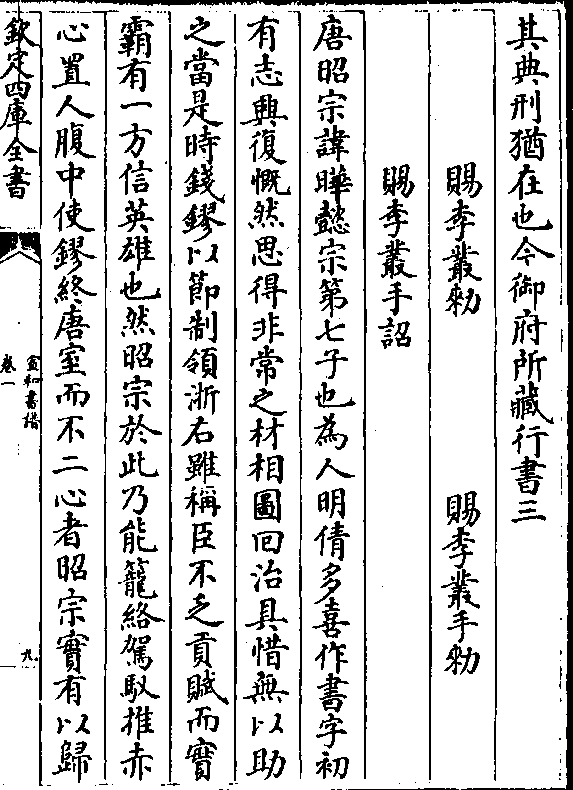 其典刑猶在也今御府所藏行書三
賜李叢勑　賜李叢手勑
賜李叢手詔
唐昭宗諱曄懿宗第七子也為人明倩多喜作書字初
有志興復慨然思得非常之材相圖回治具惜無以助
之當是時錢鏐以節制領浙右雖稱臣不乏貢賦而實
霸有一方信英雄也然昭宗於此乃能籠絡駕馭推赤
心置人腹中使鏐終唐室而不二心者昭宗實有以歸
欽定四庫全書
宣和書譜
卷一
九